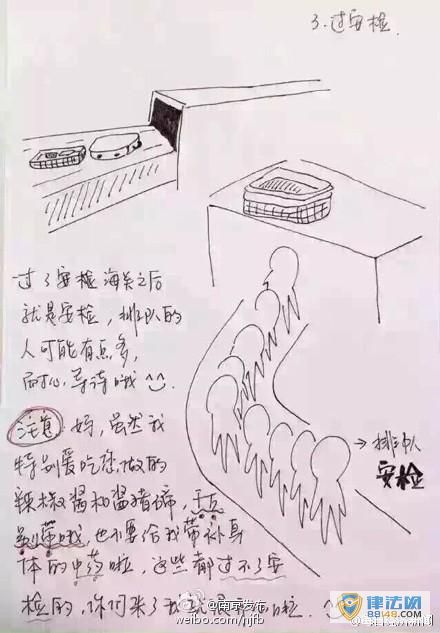 3.过安检
过了安检海关之后
就是安检，排队的
人可能有点多，
耐心等待哦
注意：妈，虽然我
特别爱吃您做的
辣椒酱和酱猪蹄，千万
别带哦，也不要给我带补身
体的中药啦，这些都过不了安
检的，你们来了我
→排队
安检
@南京发布
weibo.com/njfb
律法网
88148.com